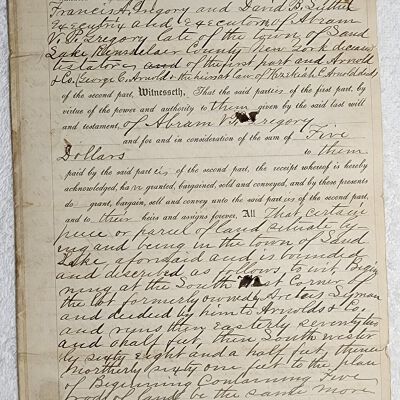 Francis A. Gregory and David B. Luther
Executrix and executors of Abram
V. P. Gregory late of the town of Sand
Lake Rensselaer County New York deceased
testator of the first part and Arnold
& Co. (George C. Arnold & the heirs at law of Hezekiah C. Arnold decd)
of the second part, Witnesseth, That the said parties of the first part, by
virtue of the power and authority to them given by the said last will
and testament, of Abram V. P. Gregory
and for and in consideration of the sum of Five
Dollars to them
paid by the said parties of the second part, the receipt whereof is hereby
acknowledged, have granted, bargained, sold and conveyed, and by these presents
do grant, bargain, sell and convey unto the said parties of the second part,
and to their heirs and assigns forever, All That certain
piece or parcel of land situate ly-
ing and being in the town of Sand
Lake aforesaid and is bounded
and described as follows, to wit, Begin-
ning at the South Corner of
the lot formerly owned Lyman
and deeded by him to Arnolds & Co.
and runs then Easterly seventy two
and a half feet, then South wester
ly sixty eight and a half feet, thence
Northerly sixty one feet to the place
of Beginning Containing Five
rods of land be the same more